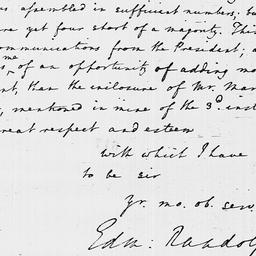 as assembled in sufficient numbers, bu
re yet four short of a majority. This
ommunications from the President; a
me
s, of an opportunity of adding mo
nt, than the enclosure of Mr. Mar
, mentioned in mine of the 3.d inst
reat respect and esteem
with which I have
to be sir
Yr. mo. ob. serv
Edm: Randolp